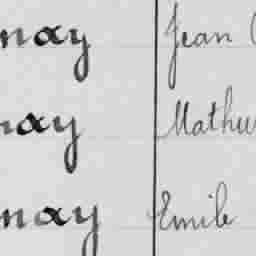 nay Jean
nay Mathu
nay Emile